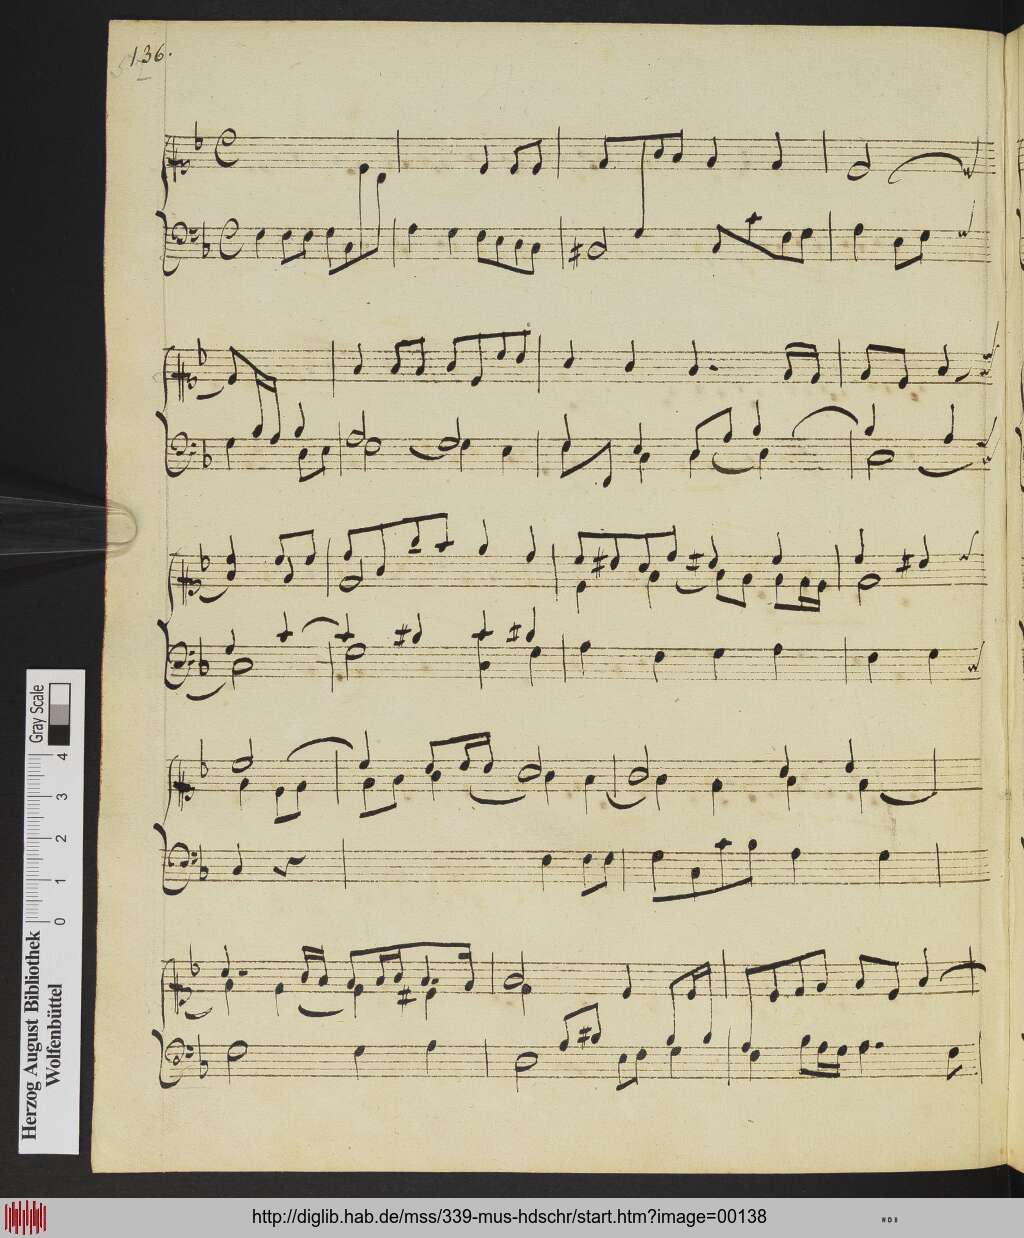 136.
Gray Scale
0 1 2 3 4
Herzog August Bibliothek
Wolfenbüttel
http://diglib.hab.de/mss/339-mus-hdschr/start.htm?image=00138